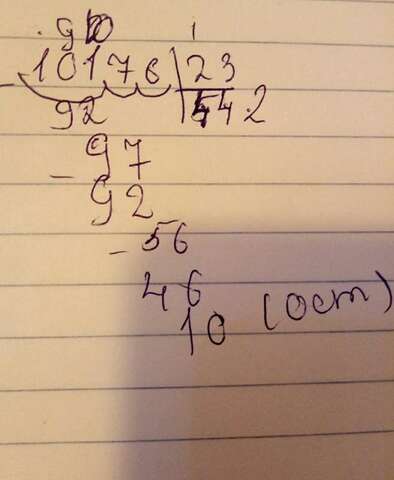 .9 10 1
- 10176 | 23
92 | 442
97
- 92
- 56
46
10 (ост)